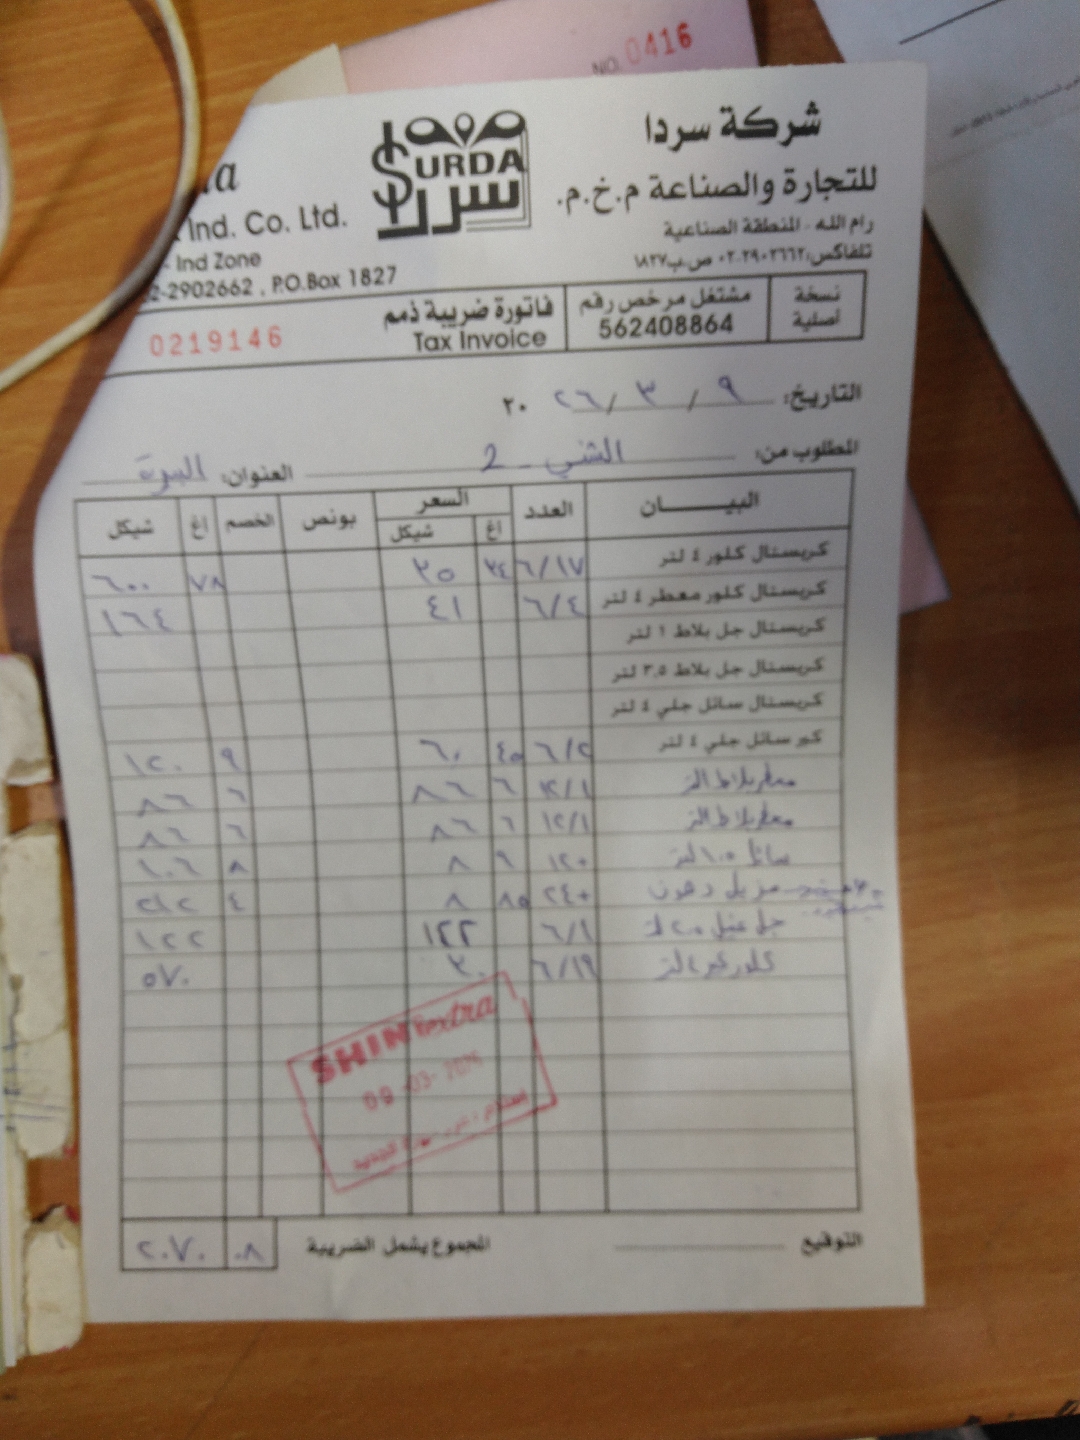 NO. 0416
شركة سردا
للتجارة والصناعة م.خ.م.
رام الله - المنطقة الصناعية
تلفاكس: ٠٢-٢٩٠٢٦٦٢ ص.ب ١٨٢٧
SURDA
سردا
Ind. Co. Ltd.
- Ind Zone
2-2902662 , P.O.Box 1827
نسخة أصلية
مشتغل مرخص رقم
562408864
فاتورة ضريبة ذمم
Tax Invoice
0219146
التاريخ: ٩ / ٣ / ٢٠٢٦
المطلوب من: الشني - 2 العنوان: البيرة
البيـــــان العدد السعر بونص الخصم اغ شيكل
اغ شيكل
كريستال كلور ٤ لتر ٦/١٧ ٣٤ ٣٥ ٧٨ ٦٠٠
كريستال كلور معطر ٤ لتر ٦/٤ ٤١ ١٦٤
كريستال جل بلاط ١ لتر
كريستال جل بلاط ٣,٥ لتر
كريستال سائل جلي ٤ لتر
كير سائل جلي ٤ لتر ٦/٢ ٤٥ ٦٠ ٩ ١٢٠
معطر بلاط التر ١٢/١ ٦ ٨٦ ٦ ٨٦
معطر بلاط التر ١٢/١ ٦ ٨٦ ٦ ٨٦
سائل ١.٥ لتر ١٢٠ ٩ ٨ ٨ ١٠٦
مزيل دهون ٢٤٠ ٨٥ ٨ ٤ ٢١٢
جل غسيل ٢.٥ ك ٦/١ ١٢٢ ١٢٢
كلور كير ٤ لتر ٦/١٩ ٣٠ ٥٧٠
SHINE extra
09-03-
التوقيع
المجموع يشمل الضريبة ٠٨ ٢٠٧٠